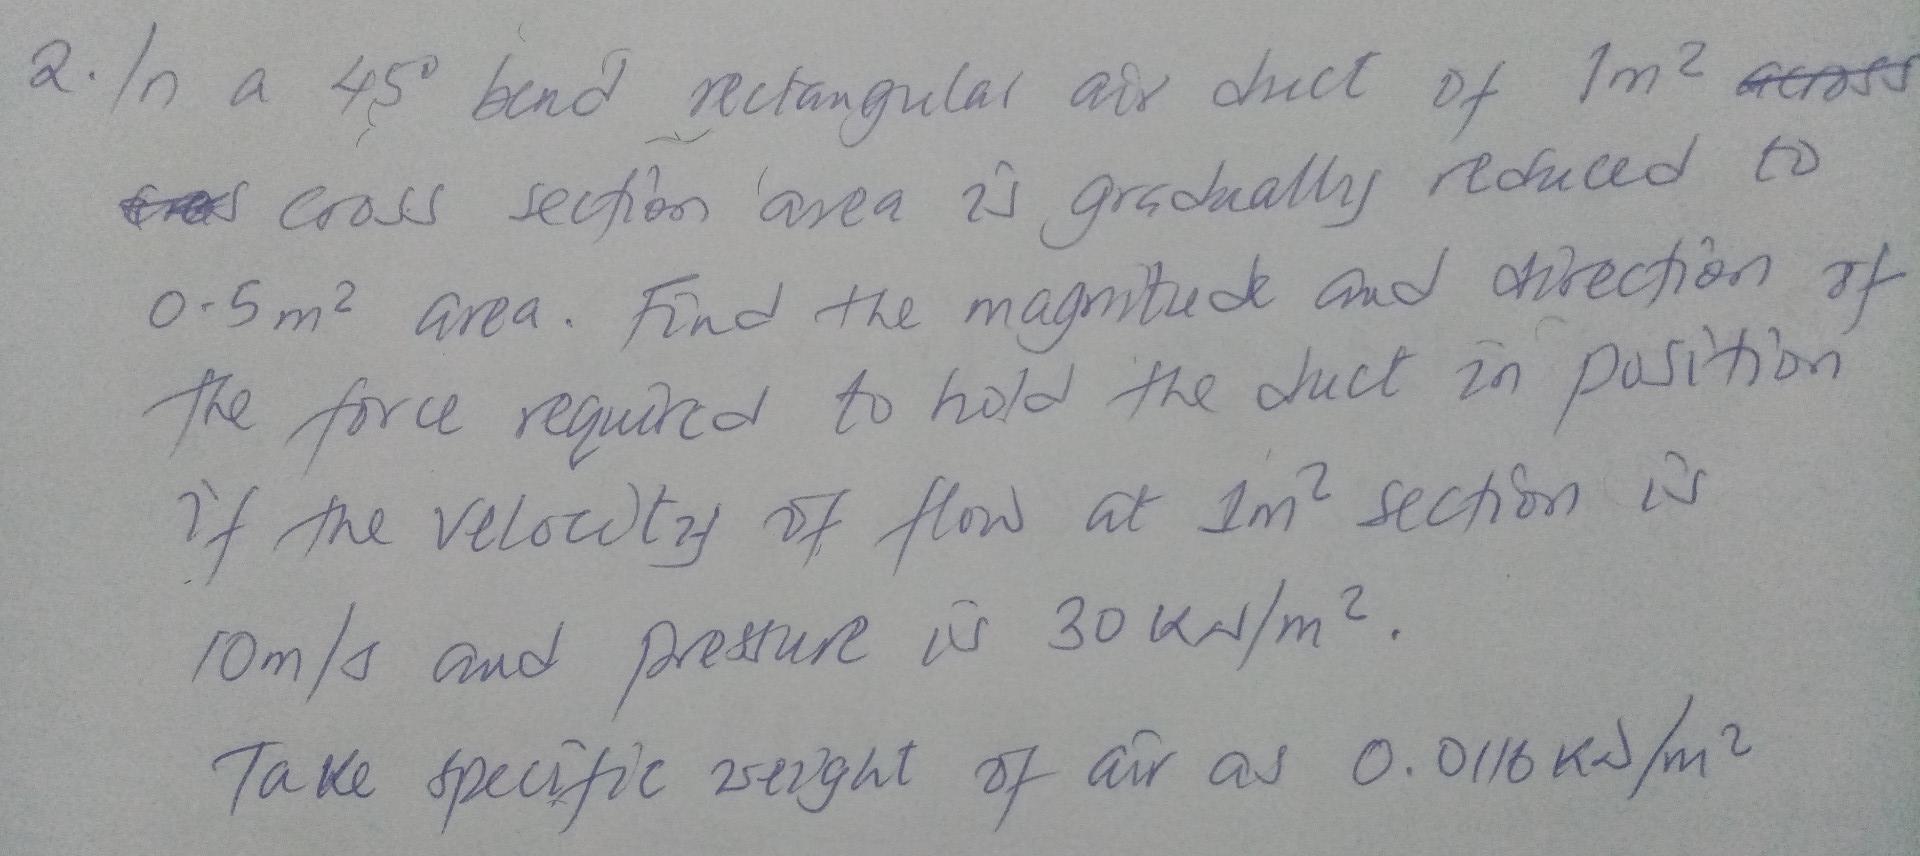 2. In a 45° bend rectangular air duct of 1m² across
cross cross section area is gradually reduced to
0.5m² area. Find the magnitude and direction of
the force required to hold the duct in position
if the velocity of flow at 1m² section is
10m/s and pressure is 30 KN/m².
Take specific weight of air as 0.0116 KN/m²